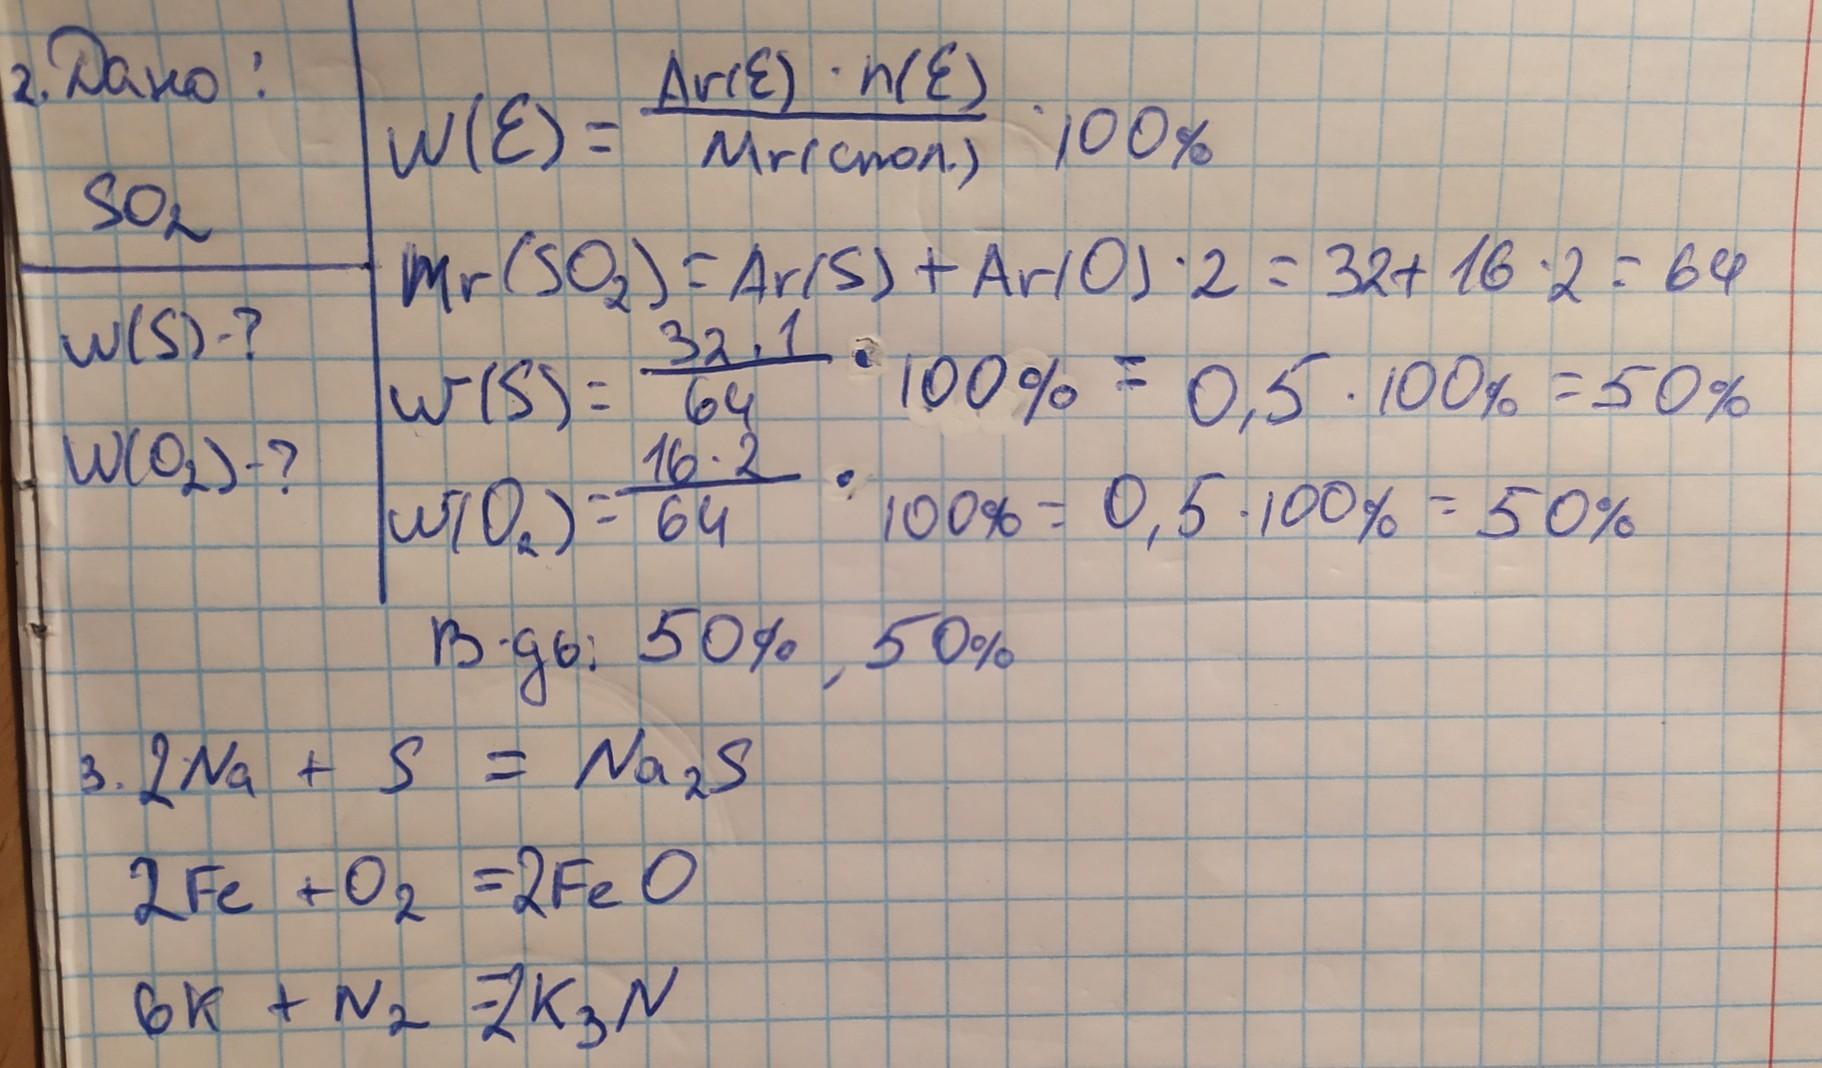 2. Дано:
SO₂
W(S)-?
W(O₂)-?
W(E) = Ar(E) · n(E) / Mr(спол.) · 100%
Mr(SO₂) = Ar(S) + Ar(O) · 2 = 32 + 16 · 2 = 64
W(S) = 32 · 1 / 64 · 100% = 0,5 · 100% = 50%
W(O₂) = 16 · 2 / 64 · 100% = 0,5 · 100% = 50%
В-дь: 50%, 50%
3. 2Na + S = Na₂S
2Fe + O₂ = 2FeO
6K + N₂ = 2K₃N